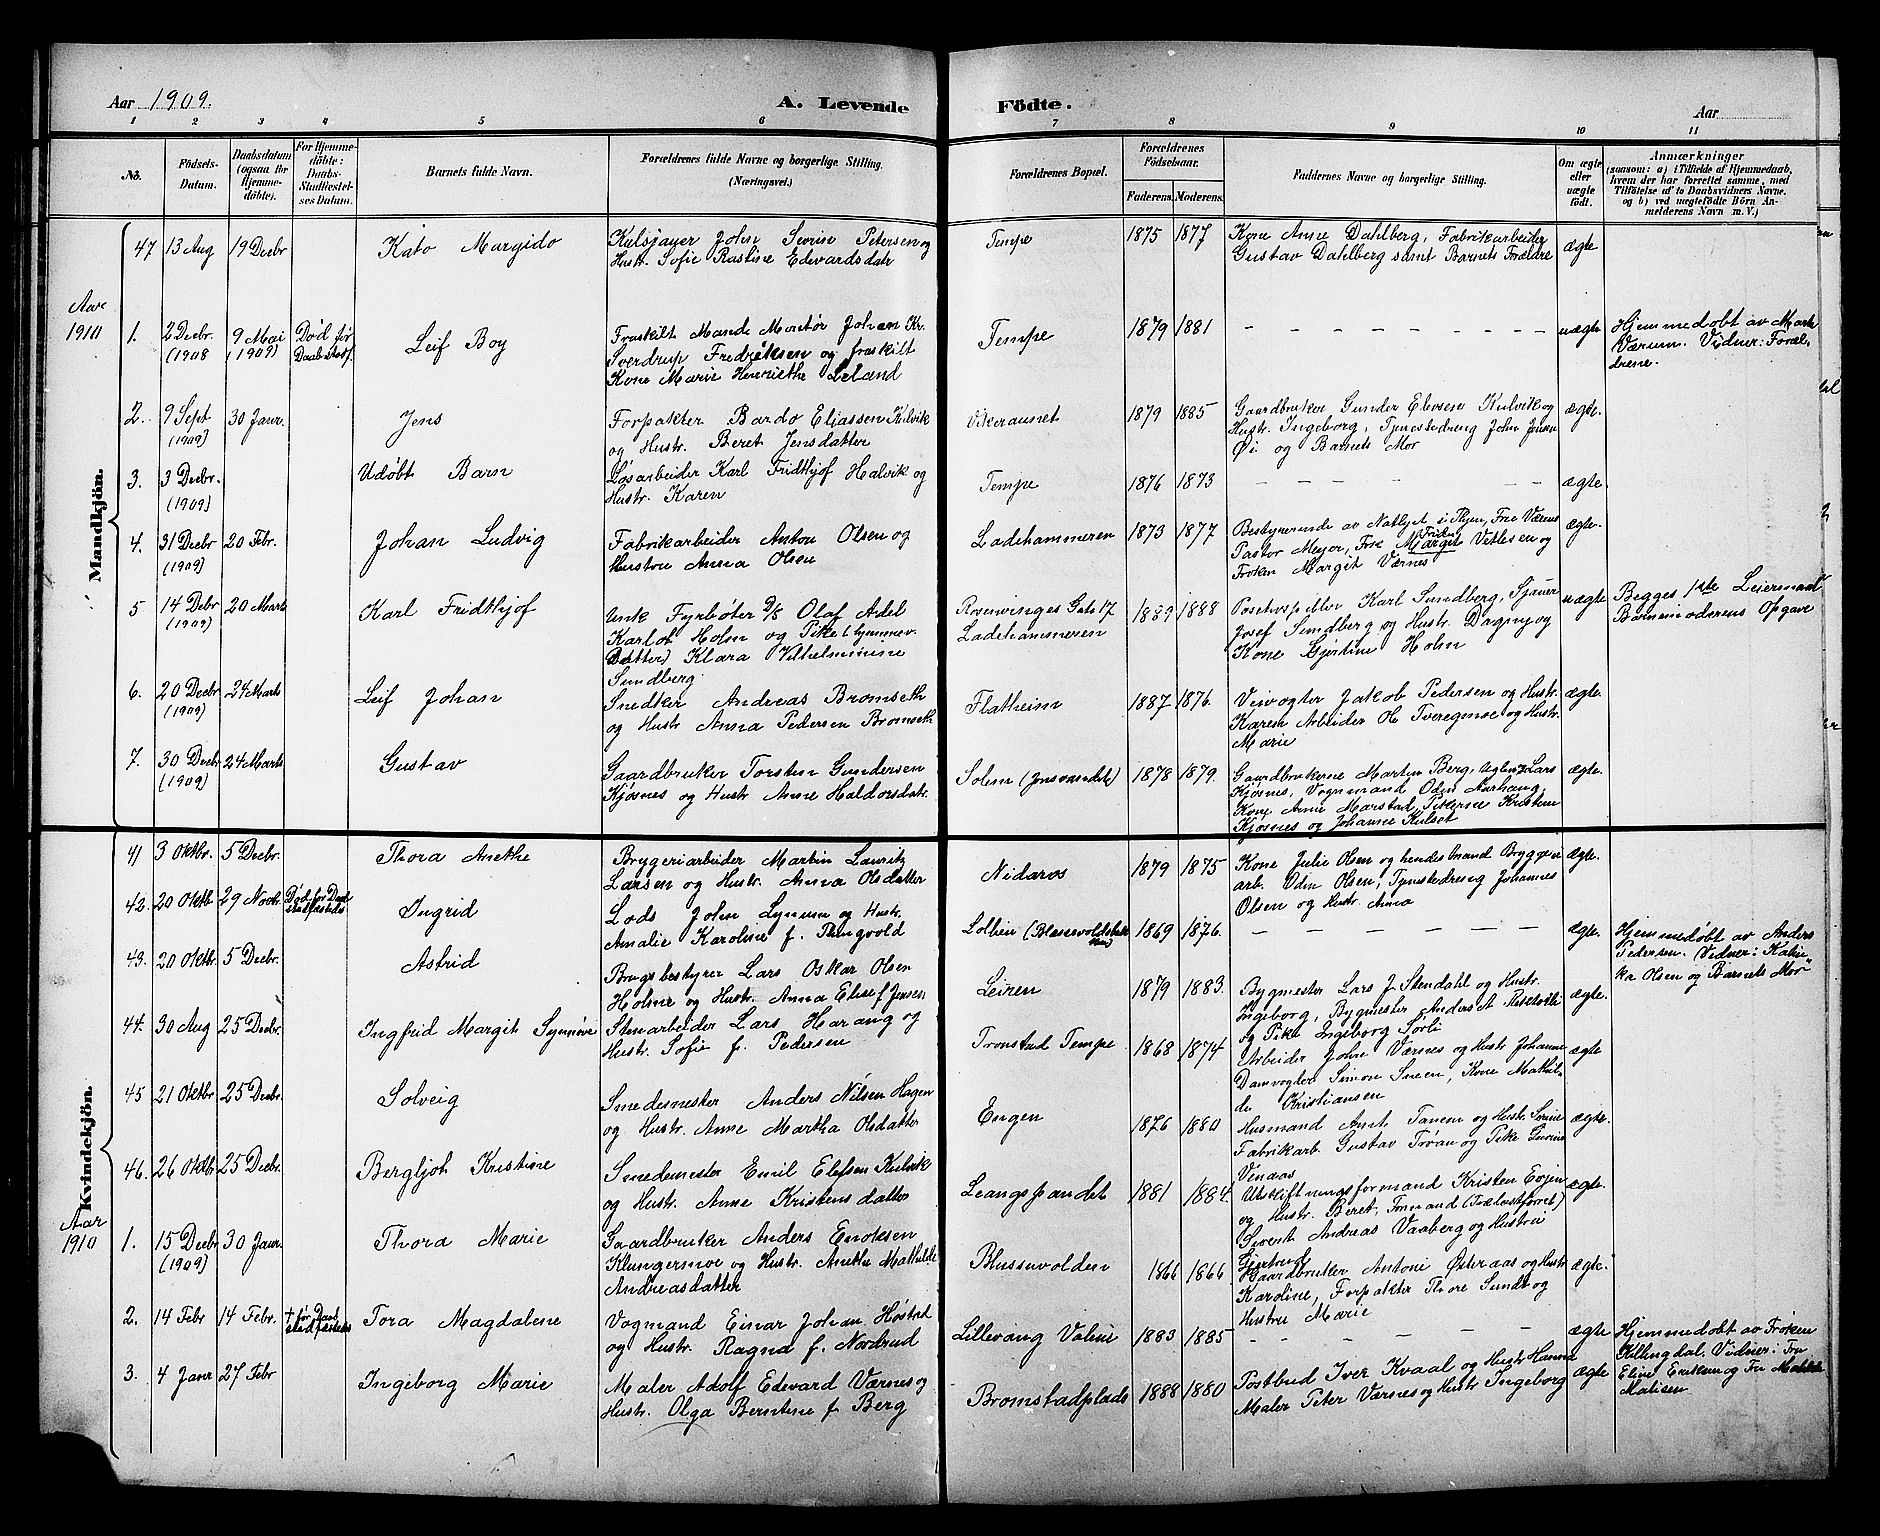 Aar 1909.
A. Levende Födte.
Aar
1 2 3 4 5 6 7 8 9 10 11
No.
Födsels-Datum.
Daabsdatum (ogsaa for Hjemmedöbte).
For Hjemmedöbte: Daabs-Stadfæstelses Datum.
Barnets fulde Navn.
Forældrenes fulde Navne og borgerlige Stilling.
(Næringsvei.)
Forældrenes Bopæl.
Forældrenes Födselsaar.
Faderens. Moderens.
Faddernes Navne og borgerlige Stilling.
Om ægte eller uægte födt.
Anmærkninger
(saasom: a) i Tilfælde af Hjemmedaab,
hvem der har forrettet samme, med
Tilföielse af to Daabsvidners Navne.
og b) ved uægtefödte Börn Anmelderens Navn m. V.)
Mandkjön.
47 13 Aug 19 Decbr Kato Margido
John Sevrin Petersen og
Hustr. Sofie Edvardsdatr
Tempe 1875 1877
Kone Anne Dahlberg, Fabrikarbeider
Gustav Dahlberg samt Barnets Forældre
ægte
Aar
1910
1. 2 Decbr. (1908 9 Mai (1909) Död før Daabsstadf. Leif Boy
Fraskilt Mand Johan Kr.
Sverdrup Fredriksen og fraskilt
Kone Marie Henriethe Leland
Tempe 1879 1881
uægte
Hjemmedøbt av
Værum. Vidner: Foræl-
drene.
2. 9 Sept (1909) 30 Janr. Jens
Forpakter Bardo Eliassen Kulvik
og Hustr. Beret Jensdatter
Vikeraunet 1879 1885
Gaardbruker Gunder Kulvik og
Hustr. Ingeborg, Tjenestedreng John
Øi og Barnets Mor
ægte.
3. 3 Decbr. (1909) Udøbt Barn
Løsarbeider Karl Fridthjof Halvik og
Hustr. Karen
Tempe 1876 1873
ægte.
4. 31 Decbr (1909) 20 Febr. Johan Ludvig
Fabrikarbeider Anton Olsen og
Hustru Anna Olsen
Ladehammeren 1873 1877
Bestyrerinde av
Pastor Meyer, Frk Margit og
Frøken Margit Værnes
ægte.
5 14 Debr (1909) 20 Marts Karl Fridthjof
Unk Fyrbøter D/S Olaf Adel
Karlot Holm og Pike
Datter) Klara Vilhelmine
Sundberg
Rosenvinges Gate 17
Ladehammeren
1889 1888
Karl Sundberg, Sjauer
Josef Sundberg og Hustr. Dagny og
Kone Gjertine Holm
uægte
Begges 1ste Leiermaal
Barnemoderens Opgave
6. 20 Decbr (1909) 24 Marts Leif Johan
Snedker Andreas Bromseth
og Hustr Anna Pedersen Bromseth
Flatheim 1887 1876.
Veivogter Jakob Pedersen og Hustr.
Karen Arbeider Ole og Hustr.
Marie
ægte.
7. 30 Decbr (1909) 24 Marts Gustav
Gaardbruker Torsten Gundersen
Kjøsnes og Hustr Anne Haldorsdatr.
Solem 1878 1879.
Gaardbrukerne Martin Berg, Lars
Kjøsnes, Vognmand Oden Aarhaug,
Kone Anne Marstad, Pikerne Kristine
Kjøsnes og Johanne Kulset
ægte.
Kvindekjön.
41 3 Oktbr. 5 Decbr. Thora Anethe
Bryggeriarbeider Martin Lauritz
Larsen og Hustr. Anna Olsdatter
Nidaros 1879 1875
Kone Julie Olsen og hendes mand Bryggeri
arb. Oden Olsen, Tjenestedreng Johannes
Olsen og Hustr. Anna
ægte.
42. 20 Oktbr 29 Novbr Død før Daab stadfæstedes Ingrid
Lods John og Hustr.
Amalie Karoline f. Thingvold
1869 1876.
ægte.
Hjemmedøbt av Anders
Pedersen. (Vidner: Katin-
ka Olsen og Barnets Mor
43. 20 Oktbr. 5 Decbr. Astrid
Brugsbestyrer Lars Oskar Olsen
Holme og Hustr. Anna Elise f Jensen
Leiren 1879 1883.
Bygmester Lars J. Stendahl og Hustr.
Ingeborg, Bygmester Anders
og Pike Ingeborg Sørli
ægte.
44. 30 Aug 25 Decbr. Ingfrid Margit Synnøve
Stenarbeider Lars Harang og
Hustr. Sofie f. Pedersen
Tronstad Tempe 1868 1874
Arbeider John Værnes og Hustr Johanne
Damvogter Simon Sneen, Kone Mathil-
de Kristiansen
ægte
45 21 Oktbr 25 Decbr. Solveig
Smedemester Anders Nilsen Hagen
og Hustr. Anne Martha Olsdatter
Engen 1876 1880
Husmand Arnt Tanem og Hustr. Serine
Fabrikarb. Gustav Trøan og Pike
ægte.
46. 26 Oktbr 25 Decbr. Bergljot Kristine
Smedemester Emil Elefsen Kulvik
og Hustr. Anne Kristensdatter
Leangspandet 1881 1884.
Utskiftningsformand Kristen Evjen
og Hustr. Beret,
Sivert Andreas Vaaberg og Hustru
Gjertrud
ægte.
Aar
1910
1. 15 Decbr (1909) 30 Janr. Thora Marie
Gaardbruker Anders Enoksen
Klungermoe og Hustr. Anethe Mathilde
Andreasdatter
Blussuvolden 1866 1866
Gaardbruker Antoni Østeraas og Hustr
Karoline, Forpakter Thore Sundt og
Hustru Marie
ægte.
2. 14 Febr 14 Febr. † før Daab stadfæstedes Tora Magdalene
Vogmand Einar Johan Høstad
og Hustr. Ragna f. Nordrud
Lillevang 1883 1885
ægte
Hjemmedøbt av Frøken
Killingdal. Vidner: Fru
Eline Eriksen og Fru
3. 4 Janr 27 Febr Ingeborg Marie
Maler Adolf Edevard Værnes og
Hustr. Olga Berntine f. Berg
Bromstadplads 1888 1880
Postbud Iver Kvaal og Hustr Hanna
Maler Peter Værnes og Hustr Ingeborg
ægte